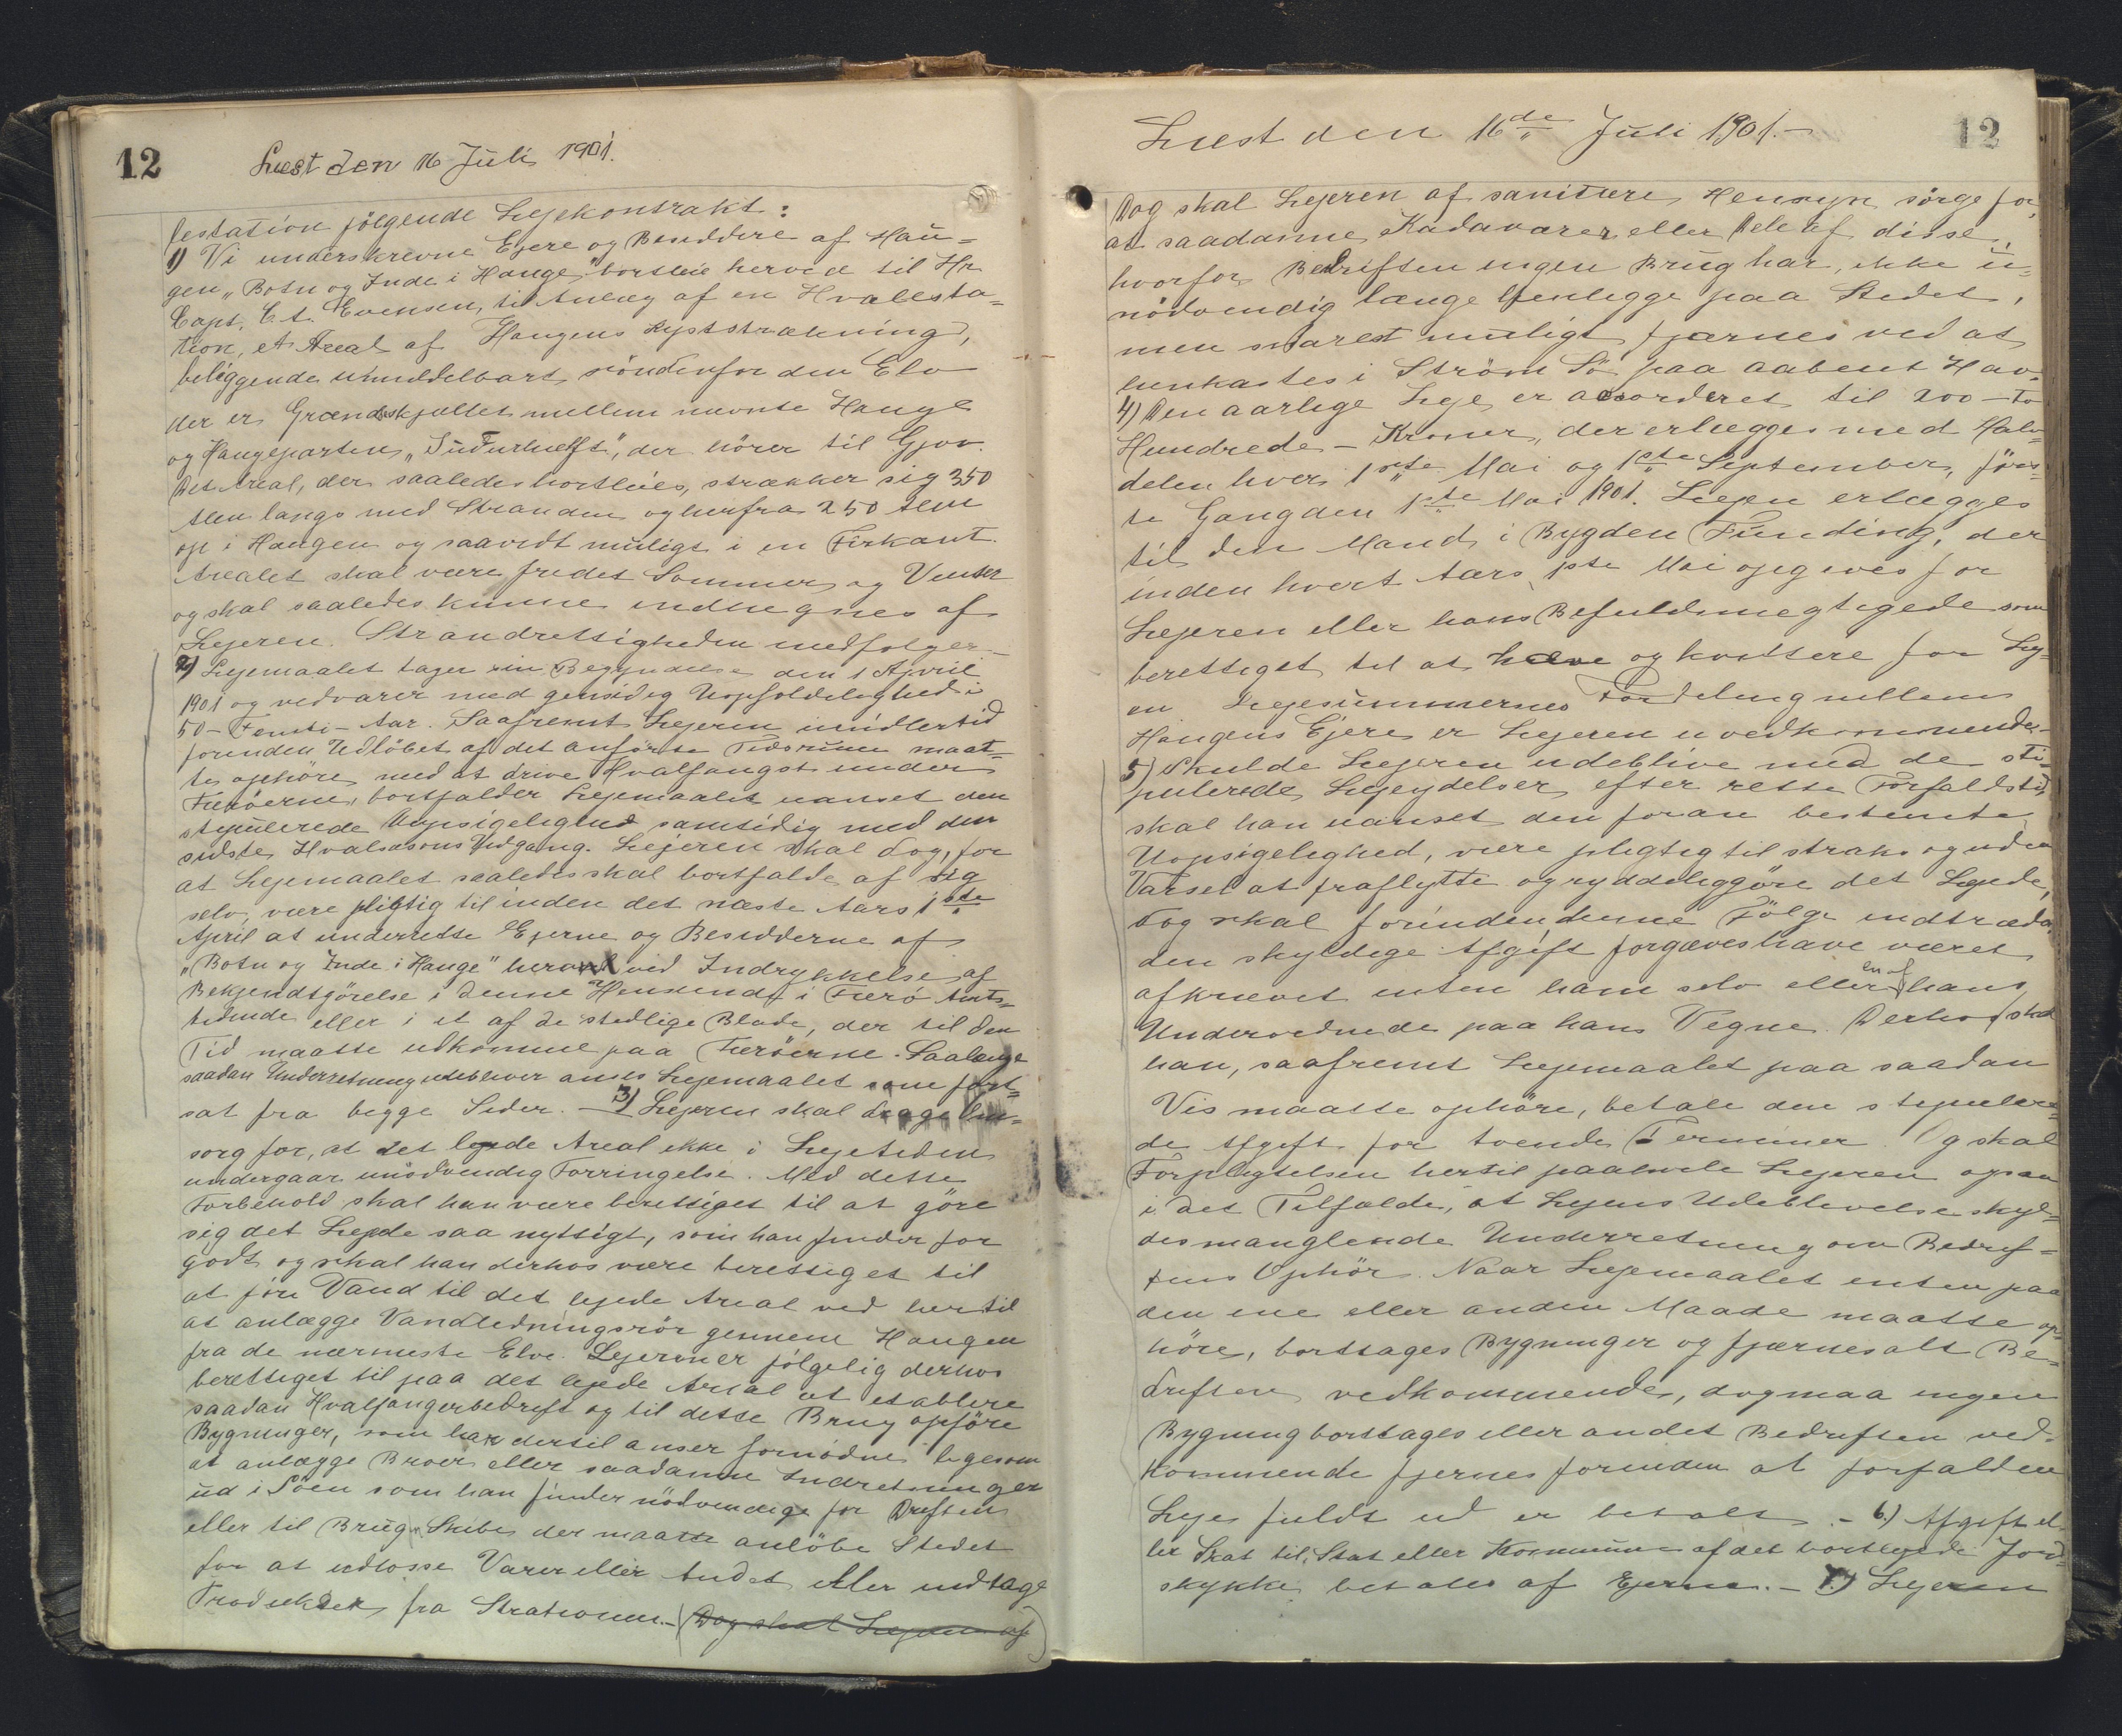 12
Læst den 16 Juli 1901.
festation følgende Lejekontrakt:
1) Vi underskrevne Ejere og Besiddere af Hau=
gen „Botn og Inde i Hauge, bortleie herved til Hr
Capt. C. t. Evensen, til Anlæg af en Hvalesta=
tion, et Areal af Haugens Kyststrækning,
beliggende umiddelbart söndenfor den Elv
der er Grændseskjellet mellem nævnte Hauge
og Haugeparten, „Suðurhelft", der hörer til Gjov.
Det Areal, der saaledes bortleies, strækker sig 350
Alen langs med Stranden og herfra 250 Alen
op i Haugen og saavidt muligt i en Firkant.
Arealet skal være fredet Sommer og Vinter
og skal saaledes kunne indhegnes af
Lejeren. Strandrettigheden medfølger. -
2) Lejemaalet tager sin Begyndelse den 1 April
1901 og vedvarer med gensidig Uopsigelighed i
50 - Femti - Aar. Saafremt Lejeren imidlertid
forinden Udløbet af det anførte Tidsrum maat=
te ophöre med at drive Hvalfangst under
Færöerne, bortfalder Lejemaalet uanset den
stipulerede Uopsigelighed samtidig med den
sidste Hvalsæsons Udgang. Lejeren skal dog, for
at Lejemaalet saaledes skal bortfalde af sig
selv, være pligtig til inden det næste Aars 1ste
April at underrette Ejerne og Besidderne af
„Botn og Inde i Hauge" herom ved Indrykkelse af
Bekjendtgörelse i denne Henseende i Færö Amts=
tidende eller i et af de stedlige Blade, der til den
Tid maatte udkomme paa Færöerne. Saalænge
saadan Underretning udebliver anses Lejemaalet som fort=
sat fra begge Sider. - 3) Lejeren skal drage Om=
sorg for, at det lejede Areal ikke i Lejetiden
undergaar unödvendig Forringelse. Med dette
Forbehold skal han være berettiget til at göre
sig det Lejede saa nyttigt, som han finder for
godt og skal han derhos være berettiget til
at före Vand til det lejede Areal ved hertil
at anlægge Vandledningsrör gennem Haugen
fra de nærmeste Elve. Lejeren er følgelig derhos
berettiget til paa det lejede Areal at etablere
saadan Hvalfangerbedrift og til dette Brug opföre
Bygninger, som han dertil anser fornödne ligesom
at anlægge Broer eller saadanne Indretninger
ud i Söen som han finder nödvendige for Driften
eller til Brug Skibe der maatte anlöbe Stedet
for at udlosse Varer eller Andet eller indtage
Produkter fra Strationen. - (Dog skal Lejeren af)
Læst den 16de Juli 1901. -
12
Dog skal Lejeren af sanitære Hensyn sörge for,
at saadanne Kadavarer eller Dele af disse,
hvorfor Bedriften ingen Brug har, ikke u=
nödvendig længe henligge paa Stedet,
men snarest muligt fjærnes ved at
henkastes i Ström Sö paa aabent Hav.
4) Den aarlige Leje er accorderet til 200 - To
Hundrede - Kroner, der erlægges med Halv=
delen hver 1ste Mai og 1ste September, förs=
te Gang den 1ste Mai 1901. Lejen erlægges
til den Mand i Bygden Funding, der
inden hvert Aars 1ste Mai opgives for
Lejeren eller hans Befuldmegtigede som
berettiget til at hæve og kvittere for Lej=
en Lejesummernes Fordeling mellem
Haugens Ejere er Lejeren uvedkommende. -
5) Skulde Lejeren udeblive med de sti=
pulerede Lejeydelser efter rette Forfaldstid,
skal han uanset den foran bestemte
Uopsigelighed, være pligtig til straks og uden
Varsel at fraflytte og ryddeliggöre det Lejede,
dog skal forinden denne Fölge indtræder
den skyldige Afgift forgæves have været
afkrævet enten ham selv eller en af hans
Undervednede paa hans Vegne. Derhos skal
han, saafremt Lejemaalet paa saadan
Vis maatte ophöre, betale den stipulere=
de Afgift for tvende Terminer. Og skal
Forpligtelsen hertil paahvile Lejeren ogsaa
i det Tilfælde, at Lejens Udeblivelse skyl=
des manglende Underretning om Bedrif=
tens Ophör. Naar Lejemaalet enten paa
den ene eller anden Maade maatte op=
höre, borttages Bygninger og fjærnes alt Be=
driften vedkommende, dog maa ingen
Bygning borttages eller andet Bedriften ved=
kommende fjernes forinden at forfalden
Leje fuldt ud er betalt. - 6.) Afgift el=
ler Skat til Stat eller Kommune af det bortlejede Jord=
stykke betales af Ejerne. - 7.) Lejeren